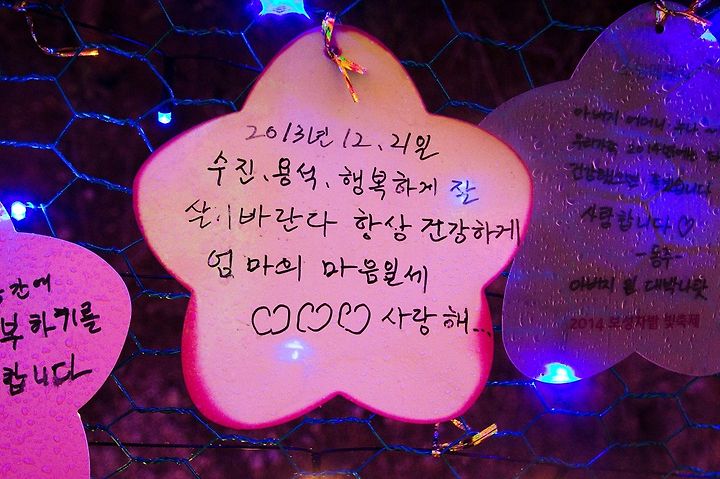 2013년 12. 21일
수진、용석、행복하게 잘
살기바란다 항상 건강하게
엄마의 마음일세
사랑해...
아버지 어머니 누나~
2014년에는
사랑합니다♡
-동주-
아버지 일 대박나랏
2014 보성차밭 빛축제
간에
하기를
랍니다